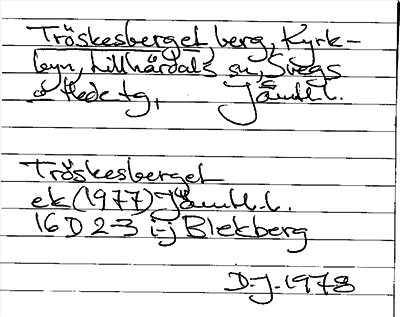 Tröskesberget berg, Kyrk-
byn, Lillhärdals sn, Svegs
o Hede tg, Jämtl.l.
Tröskesberget
ek (1977) Jämtl.l.
16D 2-3 i-j Blekberg
D-J-1978